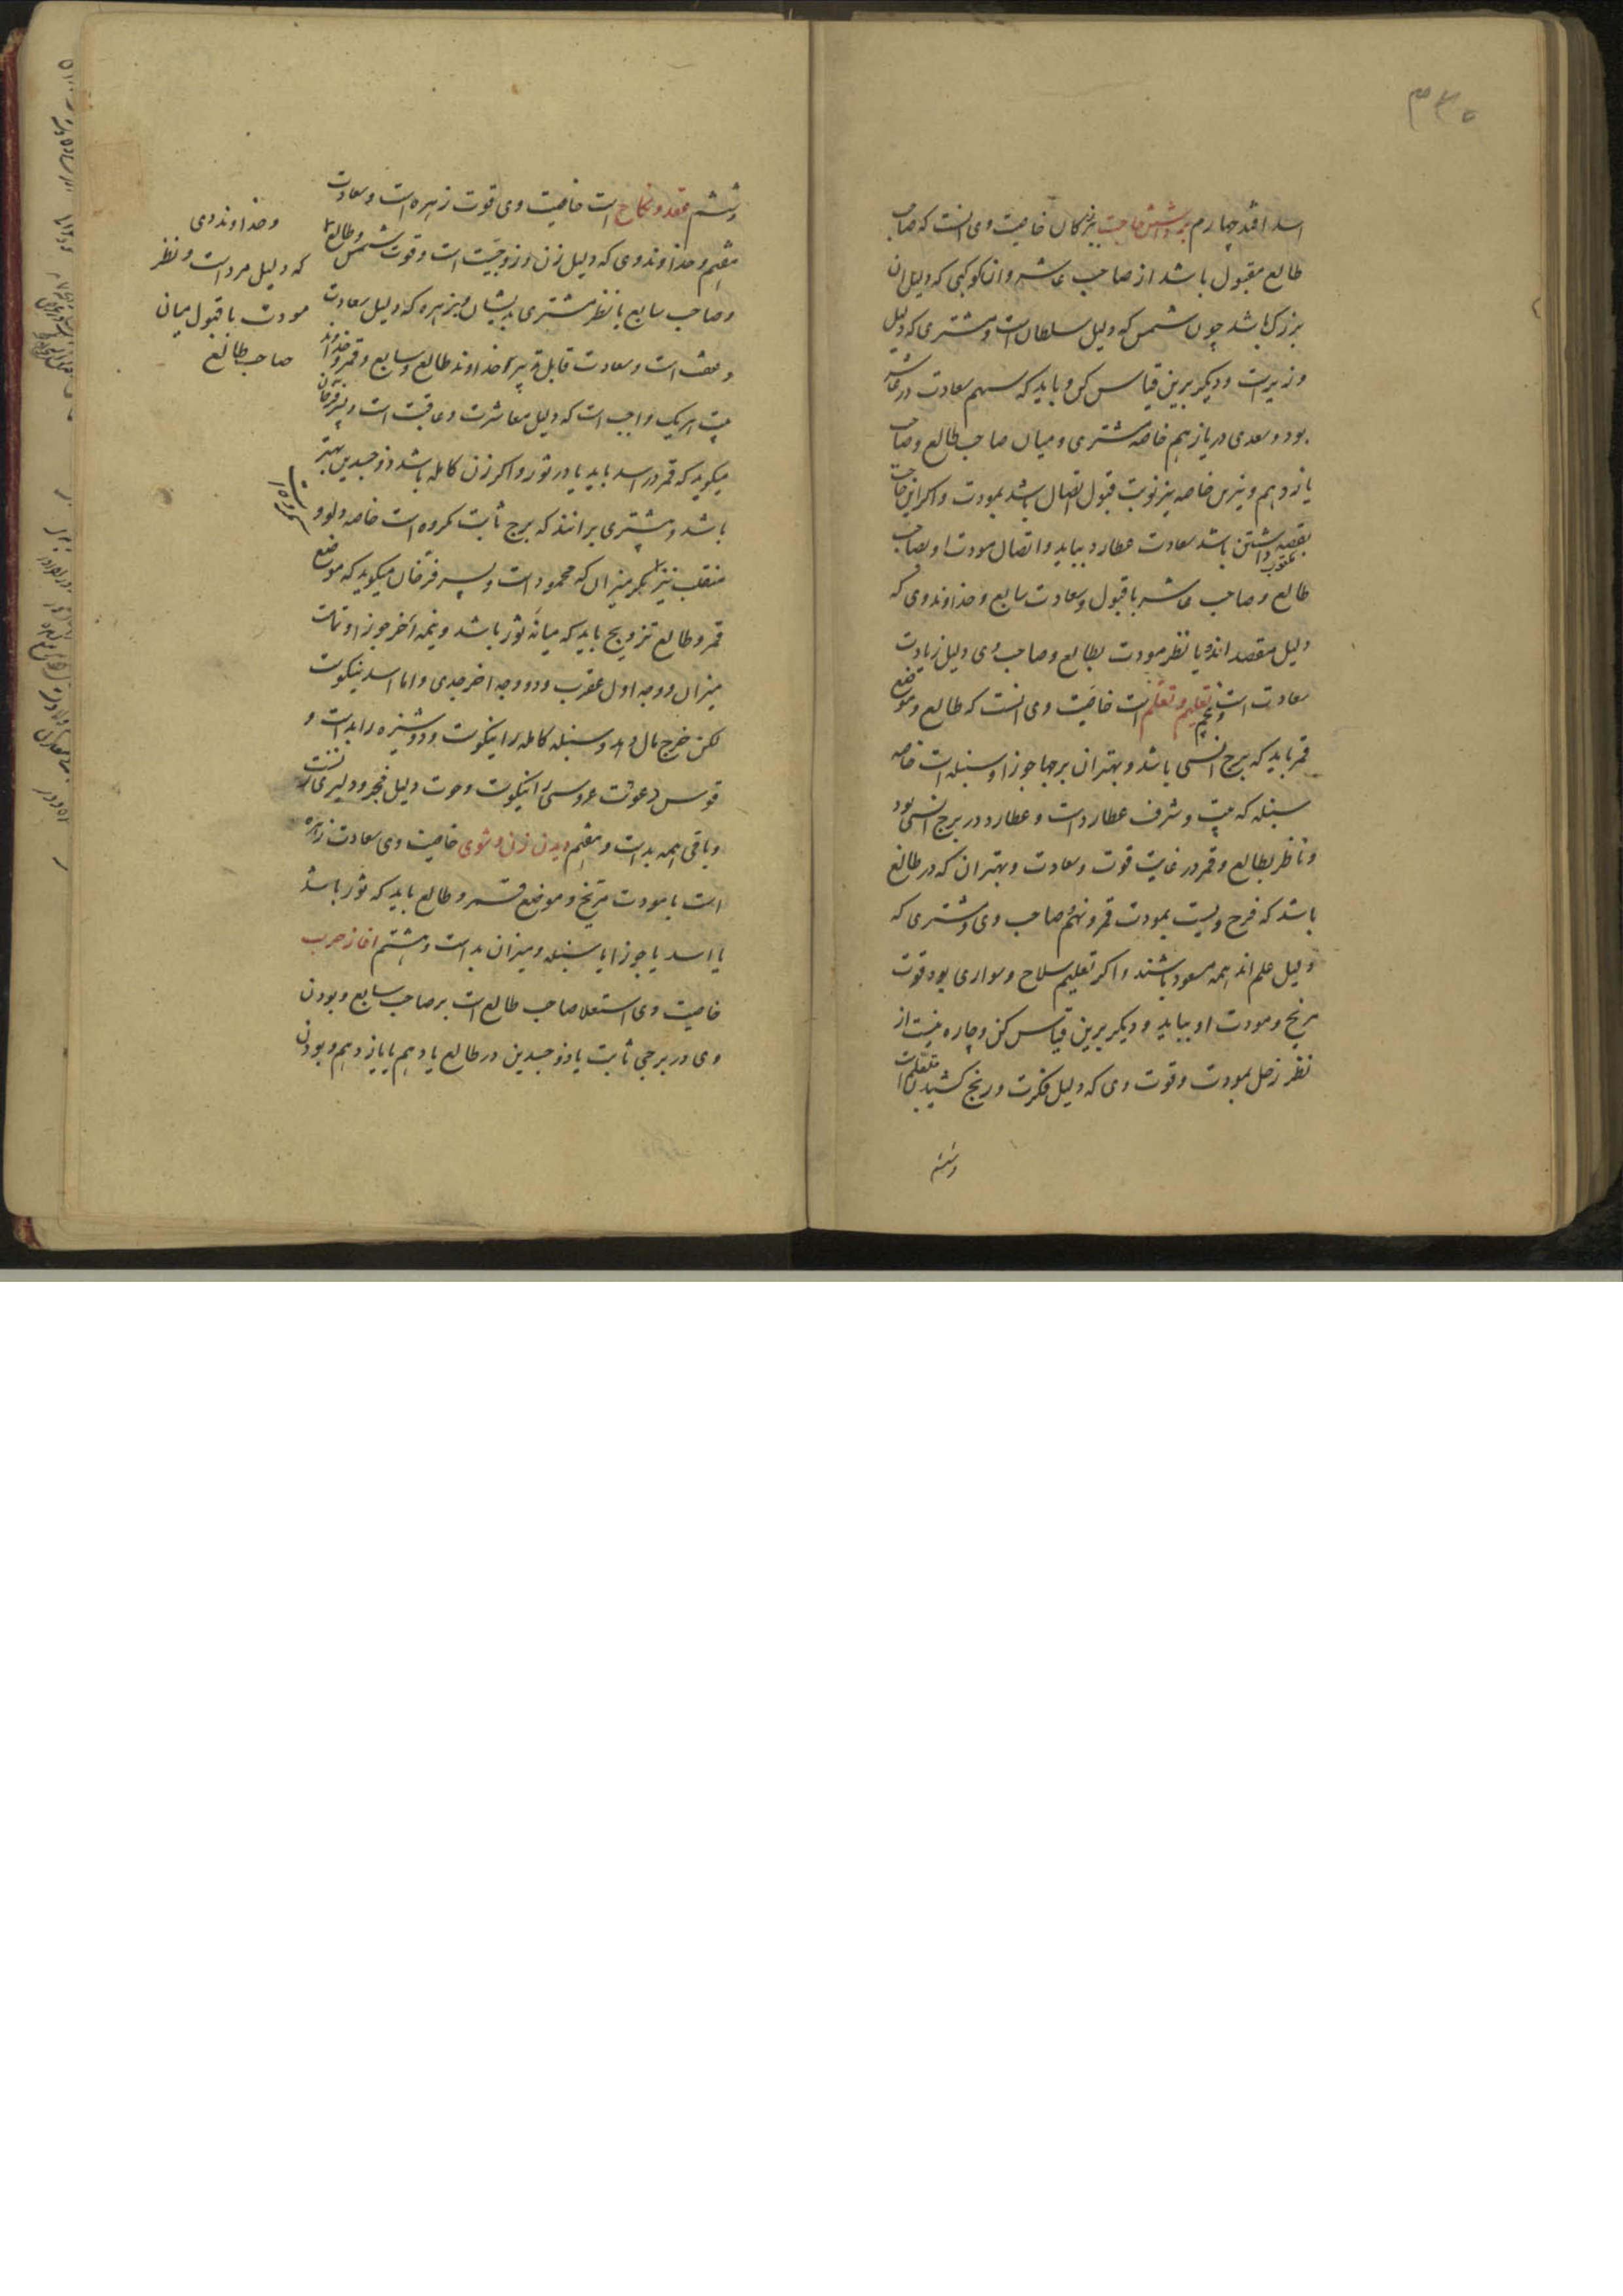 ۳۳۵
اسد افتد چهارم برداشتن حاجت ببزرکان خاصیت وی انست که صاحب
طالع مقبول باشد از صاحب عاشر و ان کوکبی که دلیل ان
بزرک باشد چون شمس که دلیل سلطان است و مشتری که دلیل
وزیرست و دیکر برین قیاس کن و باید که سهم سعادت در عاشر
بود و سعدی در یازدهم خاصه مشتری و میان صاحب طالع و صاحب
یازدهم و نیرین خاصه نیر نوبت قبول اتصال باشد بمودت و اکر این حاجت
بقصه داشتن باشد سعادت عطارد بباید و اتصال مودت او بصاحب
طالع و صاحب عاشر با قبول و سعادت سابع و خداوند وی که
دلیل مقصد اند با نظر مودت بطالع و صاحب وی دلیل زیادت
سعادت است و پنجم تعلیم و تعلم است خاصیت وی انست که طالع و موضع
قمر باید که برج انسی باشد و بهتران برجها جوزا و سنبله است خاصه
سنبله که بیت و شرف عطارد است و عطارد در برج انسی بود
و ناظر بطالع و قمر در غایت قوت و سعادت و بهتر ان که در طالع
باشد که فرح ویست بمودت قمر و نهم و صاحب وی و مشتری که
دلیل علم اند همه مسعود باشند و اکر تعلیم سلاح و سواری بود قوت
مریخ و مودت او بباید و دیکر برین قیاس کن و چاره نیست از
نظر زحل بمودت و قوت وی که دلیل فکرت و رنج کشیدن متعلم است
وششم
وششم عقد و نکاح است خاصیت وی قوت زهره است و سعادت
هفتم و خداوند وی که دلیل زن و زوجیت است و قوت شمس و طالع
وصاحب سابع با نظر مشتری بدیشان و بزهره که دلیل سعادت
و عفت است و سعادت قابل تدبیر خداوند طالع و سابع و قمر و خداوند
بیت هریک واجب است که دلیل معاشرت و عاقبت است و پسر فرخان
میکوید که قمر در اسد باید یا در ثور و اکر زن کامله باشد ذو جسدین بهتر
باشد و بیشتری برانند که برج ثابت مکروه است خاصه دلو و
منقلب نیز مکر میزان که محمود است و پسر فرخان میکوید که موضع
قمر و طالع تزویج باید که میانه ثور باشد و نیمه اخر جوزا و تمامت
میزان و وجه اول عقرب و دو وجه اخر جدی و اما اسد نیکوست
لکن خرج مال دهد و سنبله کامله را نیکوست و دوشیزه را بدست و
قوس دعوت عروسی را نیکوست و حوت دلیل فجور و دلیری
وباقی همه بدست و هفتم دیدن زن و شوی خاصیت وی سعادت زهره
است با مودت مریخ و موضع قمر و طالع باید که ثور باشد
یا اسد یا جوزا یا سنبله و میزان بد است و هشتم اغاز حرب
خاصیت وی استعلا صاحب طالع است بر صاحب سابع و بودن
وی در برجی ثابت یا ذو جسدین در طالع یا دهم یا یازدهم و بودن
وخداوند وی
که دلیل مرد است و نظر
مودت با قبول میان
صاحب طالع